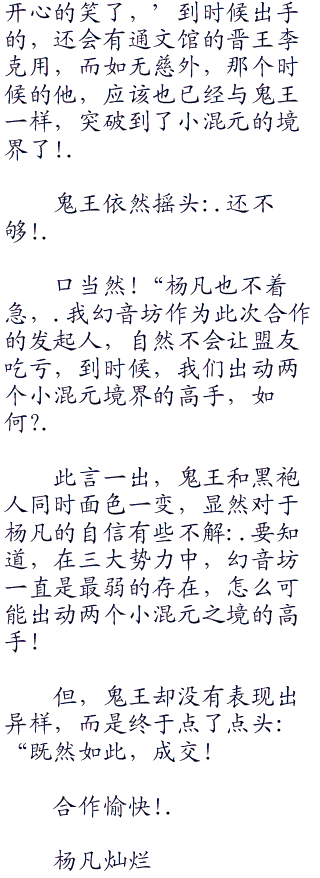 开心的笑了，’到时候出手
的，还会有通文馆的晋王李
克用，而如无慈外，那个时
候的他，应该也已经与鬼王
一样，突破到了小混元的境
界了!.
鬼王依然摇头:.还不
够!.
口当然！“杨凡也不着
急，.我幻音坊作为此次合作
的发起人，自然不会让盟友
吃亏，到时候，我们出动两
个小混元境界的高手，如
何?.
此言一出，鬼王和黑袍
人同时面色一变，显然对于
杨凡的自信有些不解:.要知
道，在三大势力中，幻音坊
一直是最弱的存在，怎么可
能出动两个小混元之境的高
手！
但，鬼王却没有表现出
异样，而是终于点了点头：
“既然如此，成交！
合作愉快!.
杨凡灿烂